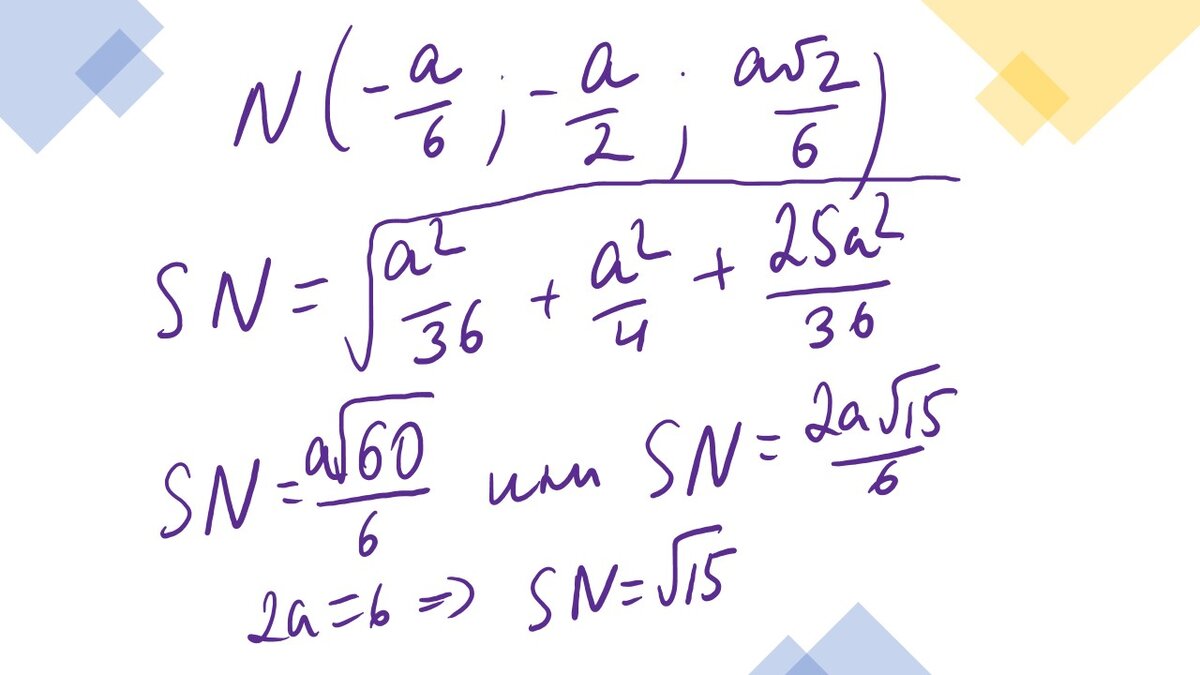 N(-a/6; -a/2; a√2/6)
SN = √(a²/36 + a²/4 + 25a²/36)
SN = a√60/6 или SN = 2a√15/6
2a = 6 => SN = √15